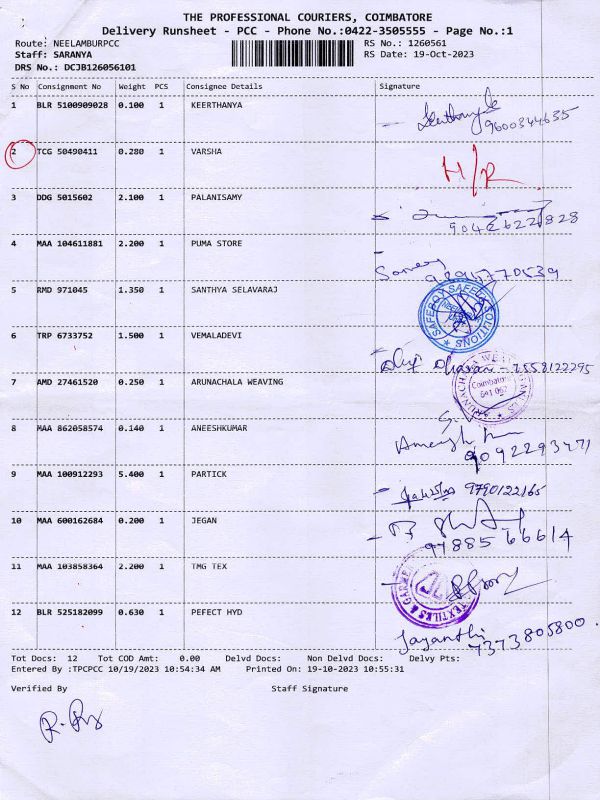 THE PROFESSIONAL COURIERS, COIMBATORE
Delivery Runsheet - PCC - Phone No.:0422-3505555 - Page No.:1
Route: NEELAMBURPCC RS No.: 1260561
Staff: SARANYA RS Date: 19-Oct-2023
DRS No.: DCJB126056101
S No Consignment No Weight PCS Consignee Details Signature
1 BLR 5100909028 0.100 1 KEERTHANYA
9600344635
2 TCG 50490411 0.280 1 VARSHA H/R
3 DDG 5015602 2.100 1 PALANISAMY
9042622828
4 MAA 104611881 2.200 1 PUMA STORE
5 RMD 971045 1.350 1 SANTHYA SELAVARAJ
SAFEBOY SAFETY SOLUTIONS
6 TRP 6733752 1.500 1 VEMALADEVI
7558122295
7 AMD 27461520 0.250 1 ARUNACHALA WEAVING
Coimbatore
641 062
8 MAA 862058574 0.140 1 ANEESHKUMAR
9092293471
9 MAA 100912293 5.400 1 PARTICK
9790122165
10 MAA 600162684 0.200 1 JEGAN
9788566614
11 MAA 103858364 2.200 1 TMG TEX
TEXTILKS & GARMEN
12 BLR 525182099 0.630 1 PEFECT HYD
Jayanthi
7373805800.
Tot Docs: 12 Tot COD Amt: 0.00 Delvd Docs: Non Delvd Docs: Delvy Pts:
Entered By :TPCPCC 10/19/2023 10:54:34 AM Printed On :19-10-2023 10:55:31
Verified By Staff Signature